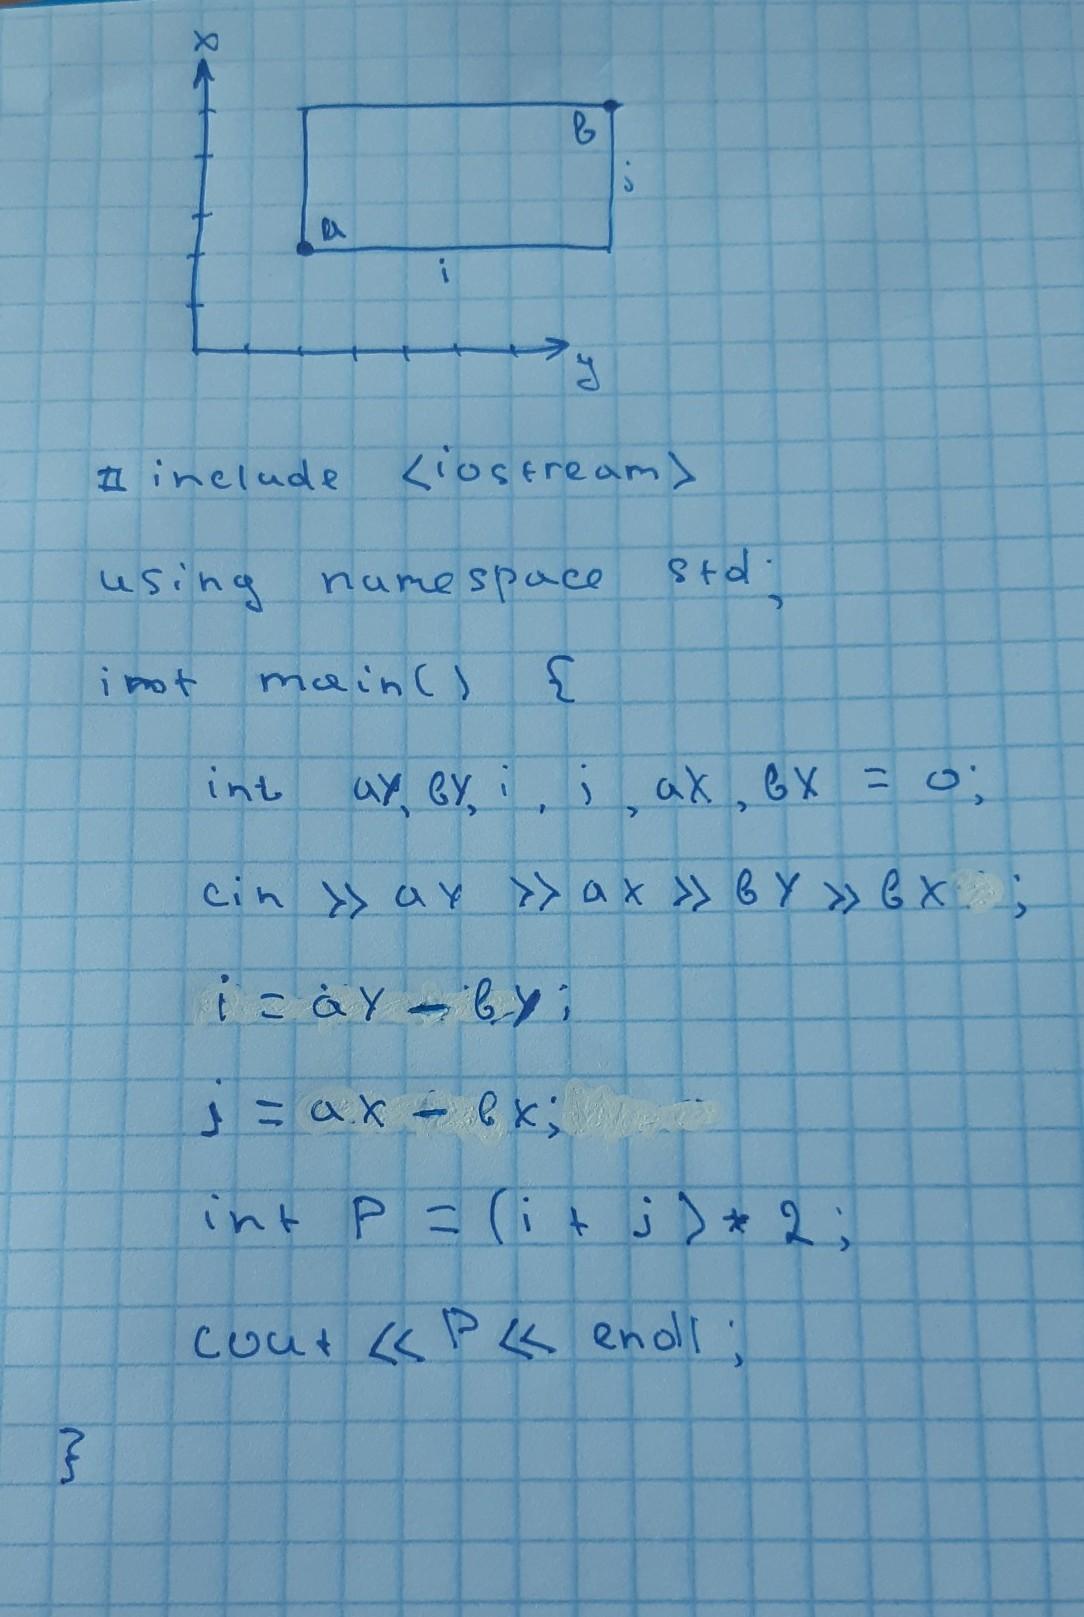 x
b
j
a
i
y
# include <iostream>
using namespace std;
int main() {
int aY, bY, i, j, aX, bX = 0;
cin >> aY >> aX >> bY >> bX ;
i = aY - bY;
j = aX - bX;
int P = (i + j) * 2;
cout << P << endl;
}